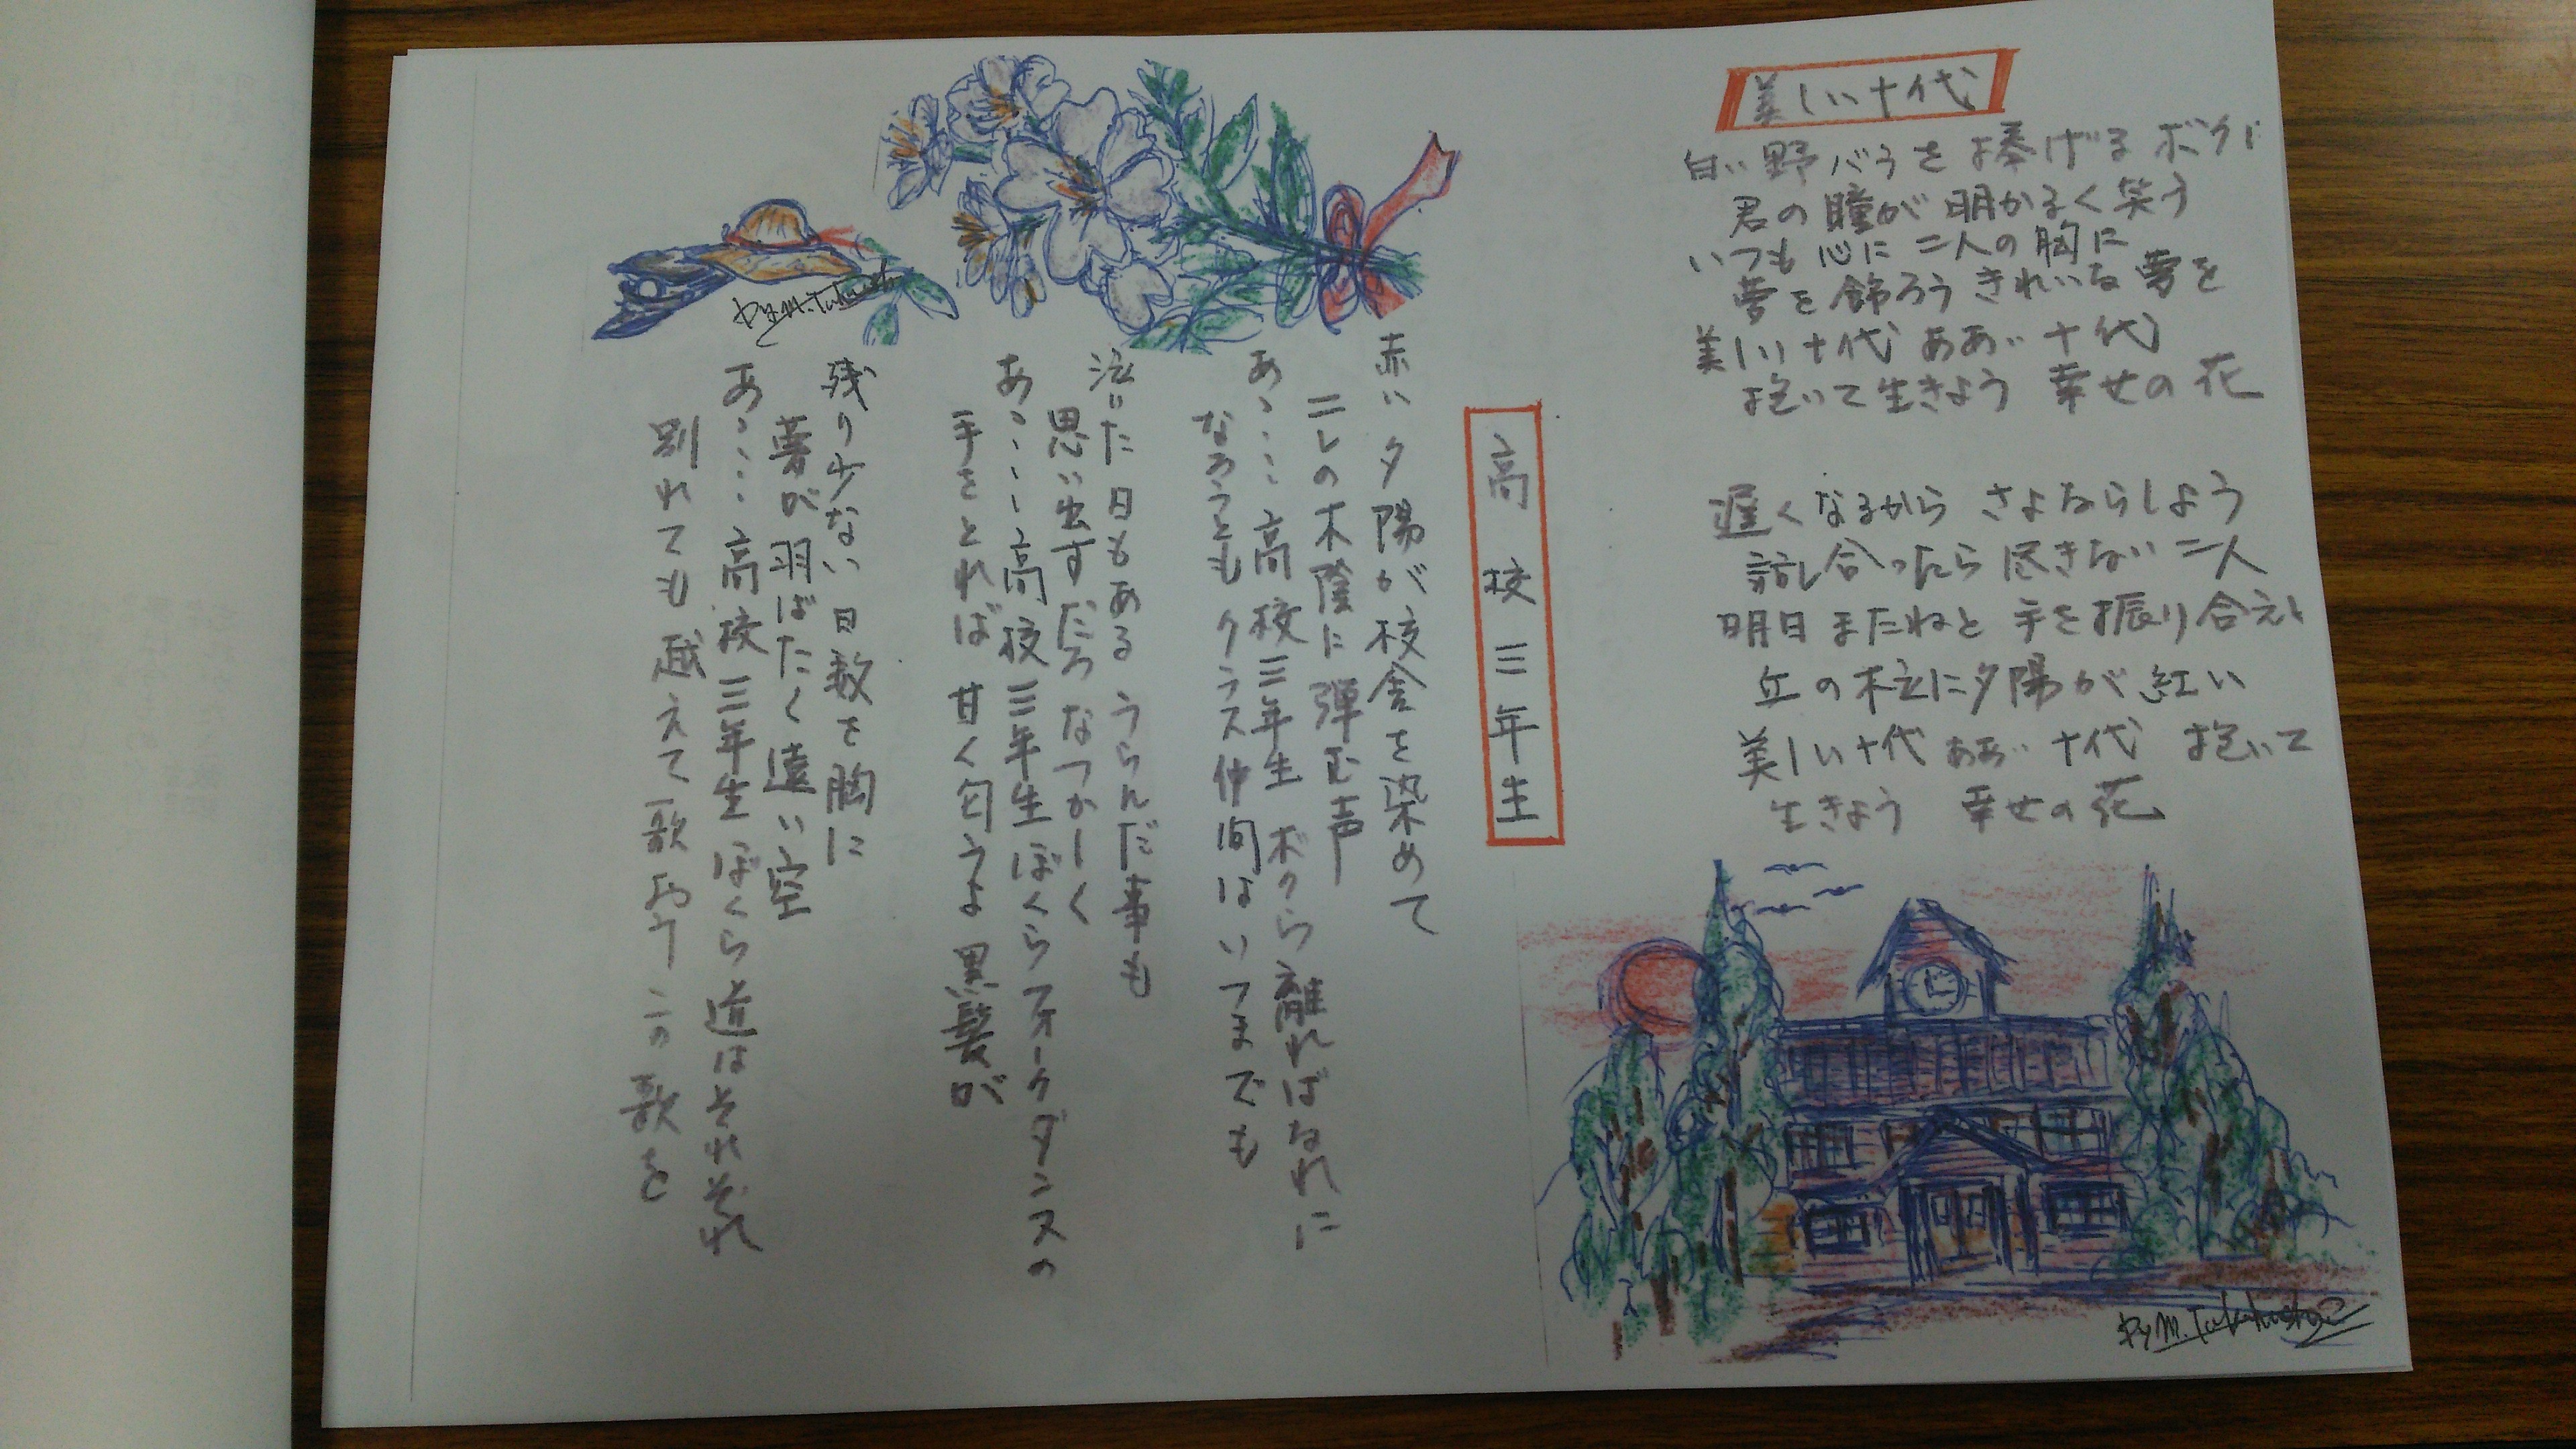 美しい十代
白い野バラを捧げるボクに
君の瞳が明かるく笑う
いつも心に二人の胸に
夢を飾ろうきれいな夢を
美しい十代 ああ‥十代
抱いて生きよう 幸せの花
遅くなるから さよならしよう
話し合ったら尽きない二人
明日またねと 手を振り合えば
丘の木立に夕陽が紅い
美しい十代 ああ‥十代 抱いて
生きよう 幸せの花
高校三年生
赤い夕陽が校舎を染めて
ニレの木陰に弾む声
あゝ…高校三年生 ボクら離ればなれに
なろうともクラス仲間はいつまでも
泣いた日もある うらんだ事も
思い出すだろ なつかしく
あゝ…高校三年生ぼくらフォークダンスの
手をとれば甘く匂うよ黒髪が
残り少ない日数を胸に
夢が羽ばたく遠い空
あゝ…高校三年生ぼくら道はそれぞれ
別れても越えて歌おうこの歌を